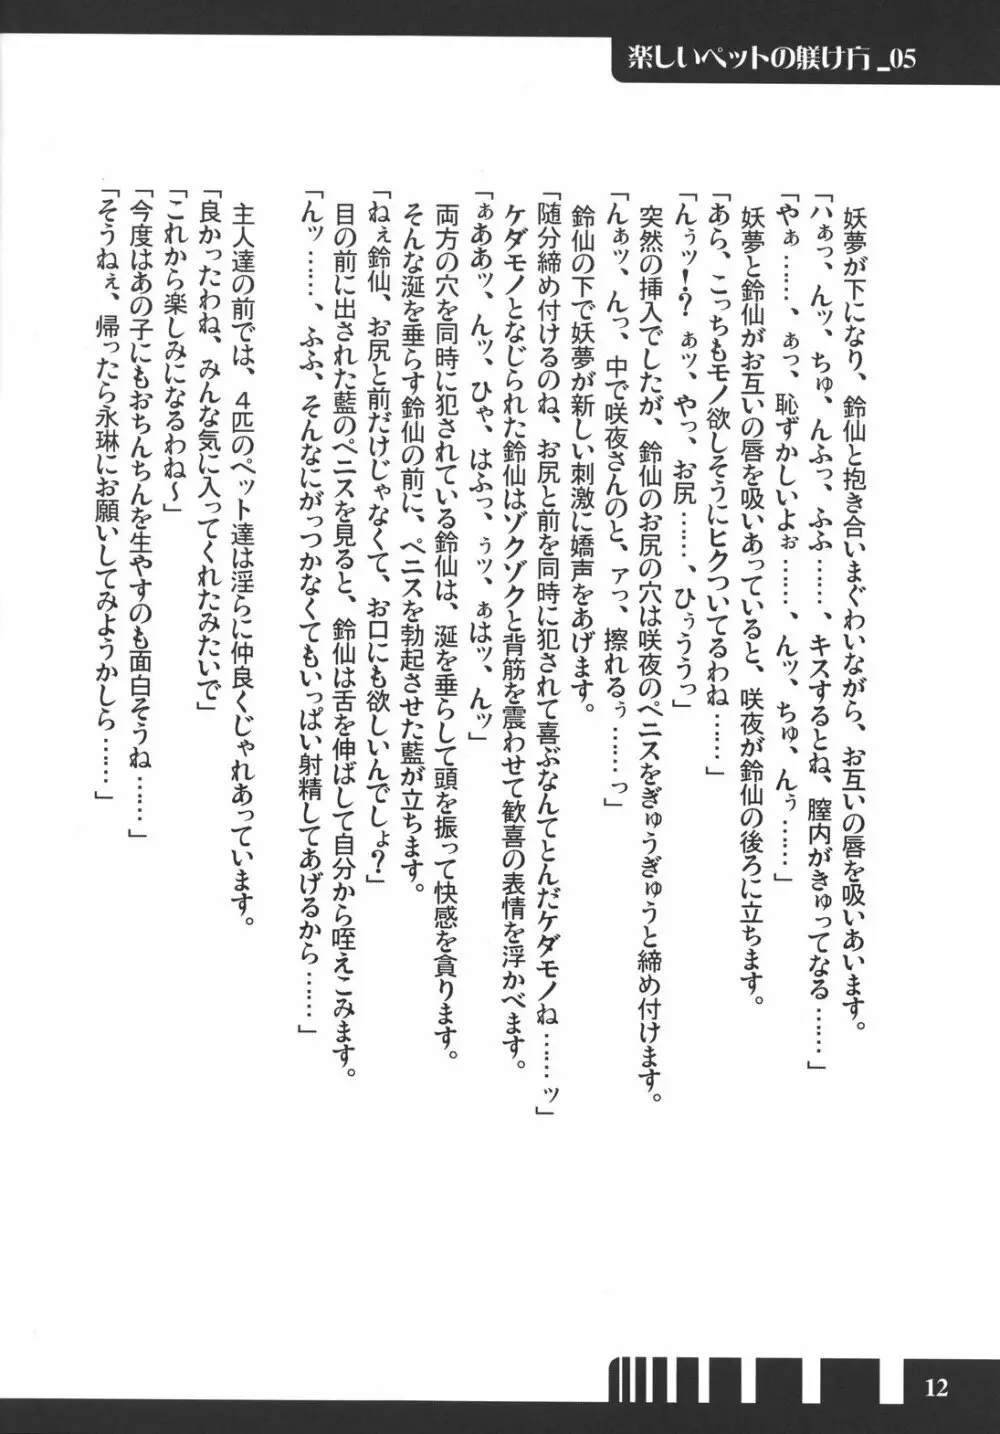 楽しいペットの躾け方_05
妖夢が下になり、鈴仙と抱き合いまぐわいながら、お互いの唇を吸いあいます。
「ハぁっ、んッ、ちゅ、んふっ、ふふ……、キスするとね、膣内がきゅってなる……」
「やぁ……、ぁっ、恥ずかしいよぉ……、んッ、ちゅ、んぅ……」
妖夢と鈴仙がお互いの唇を吸いあっていると、咲夜が鈴仙の後ろに立ちます。
「あら、こっちもモノ欲しそうにヒクついてるわね……」
「んぅッ！？　ぁッ、やっ、お尻……、ひぅううっ」
突然の挿入でしたが、鈴仙のお尻の穴は咲夜のペニスをぎゅうぎゅうと締め付けます。
「んぁッ、んっ、中で咲夜さんのと、アっ、擦れるぅ……っ」
鈴仙の下で妖夢が新しい刺激に嬌声をあげます。
「随分締め付けるのね、お尻と前を同時に犯されて喜ぶなんてとんだケダモノね……ッ」
ケダモノとなじられた鈴仙はゾクゾクと背筋を震わせて歓喜の表情を浮かべます。
「ぁああッ、んッ、ひゃ、はふっ、ぅッ、ぁはッ、んッ」
両方の穴を同時に犯されている鈴仙は、涎を垂らして頭を振って快感を貪ります。
そんな涎を垂らす鈴仙の前に、ペニスを勃起させた藍が立ちます。
「ねぇ鈴仙、お尻と前だけじゃなくて、お口にも欲しいんでしょ？」
目の前に出された藍のペニスを見ると、鈴仙は舌を伸ばして自分から咥えこみます。
「んッ……、ふふ、そんなにがっつかなくてもいっぱい射精してあげるから……」
主人達の前では、４匹のペット達は淫らに仲良くじゃれあっています。
「良かったわね、みんな気に入ってくれたみたいで」
「これから楽しみになるわね～」
「今度はあの子にもおちんちんを生やすのも面白そうね……」
「そうねぇ、帰ったら永琳にお願いしてみようかしら……」
12